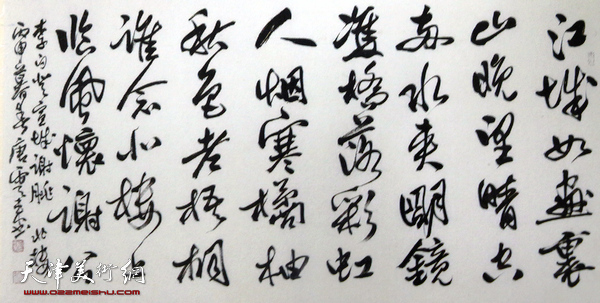 江城如畫裏
山晚望晴空
兩水夾明鏡
雙橋落彩虹
人烟寒橘柚
秋色老梧桐
誰念北樓上
臨風懷謝公
李白登宣城謝朓北樓
丙申暮春唐雲来書
天津美術網
www.022meishu.com